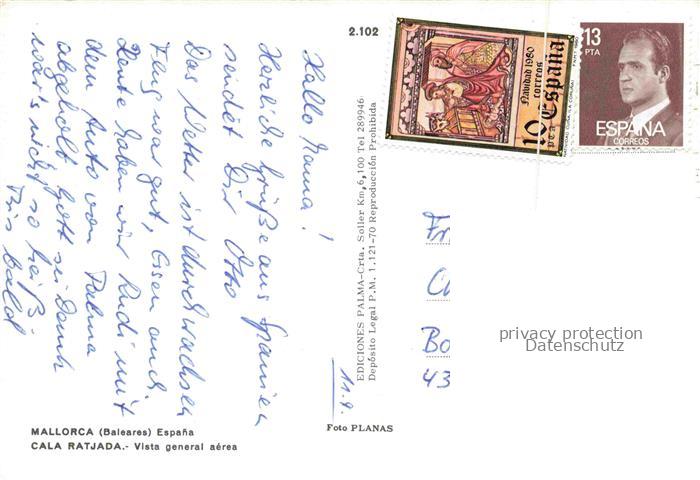 2.102
Hallo Mama!
Herzliche Grüße aus Spanien
sendet Dir Otto
Das Wetter ist durchwachsen
Flug war gut, Essen auch.
Heute haben wir Rudi mit
dem Auto von Palma
abgeholt, Gott sei Dank
wär's nicht so heiß.
Bis bald
11.9.
EDICIONES PALMA-Crta. Soller Km, 6,100 Tel 289946
Depósito Legal P.M. 1.121-70 Reproducción Prohibida
Navidad 1980
correos
10 PTA España
13 PTA
ESPAÑA
CORREOS
Fr
Bo
43
privacy protection
Datenschutz
Foto PLANAS
MALLORCA (Baleares) España
CALA RATJADA.- Vista general aérea